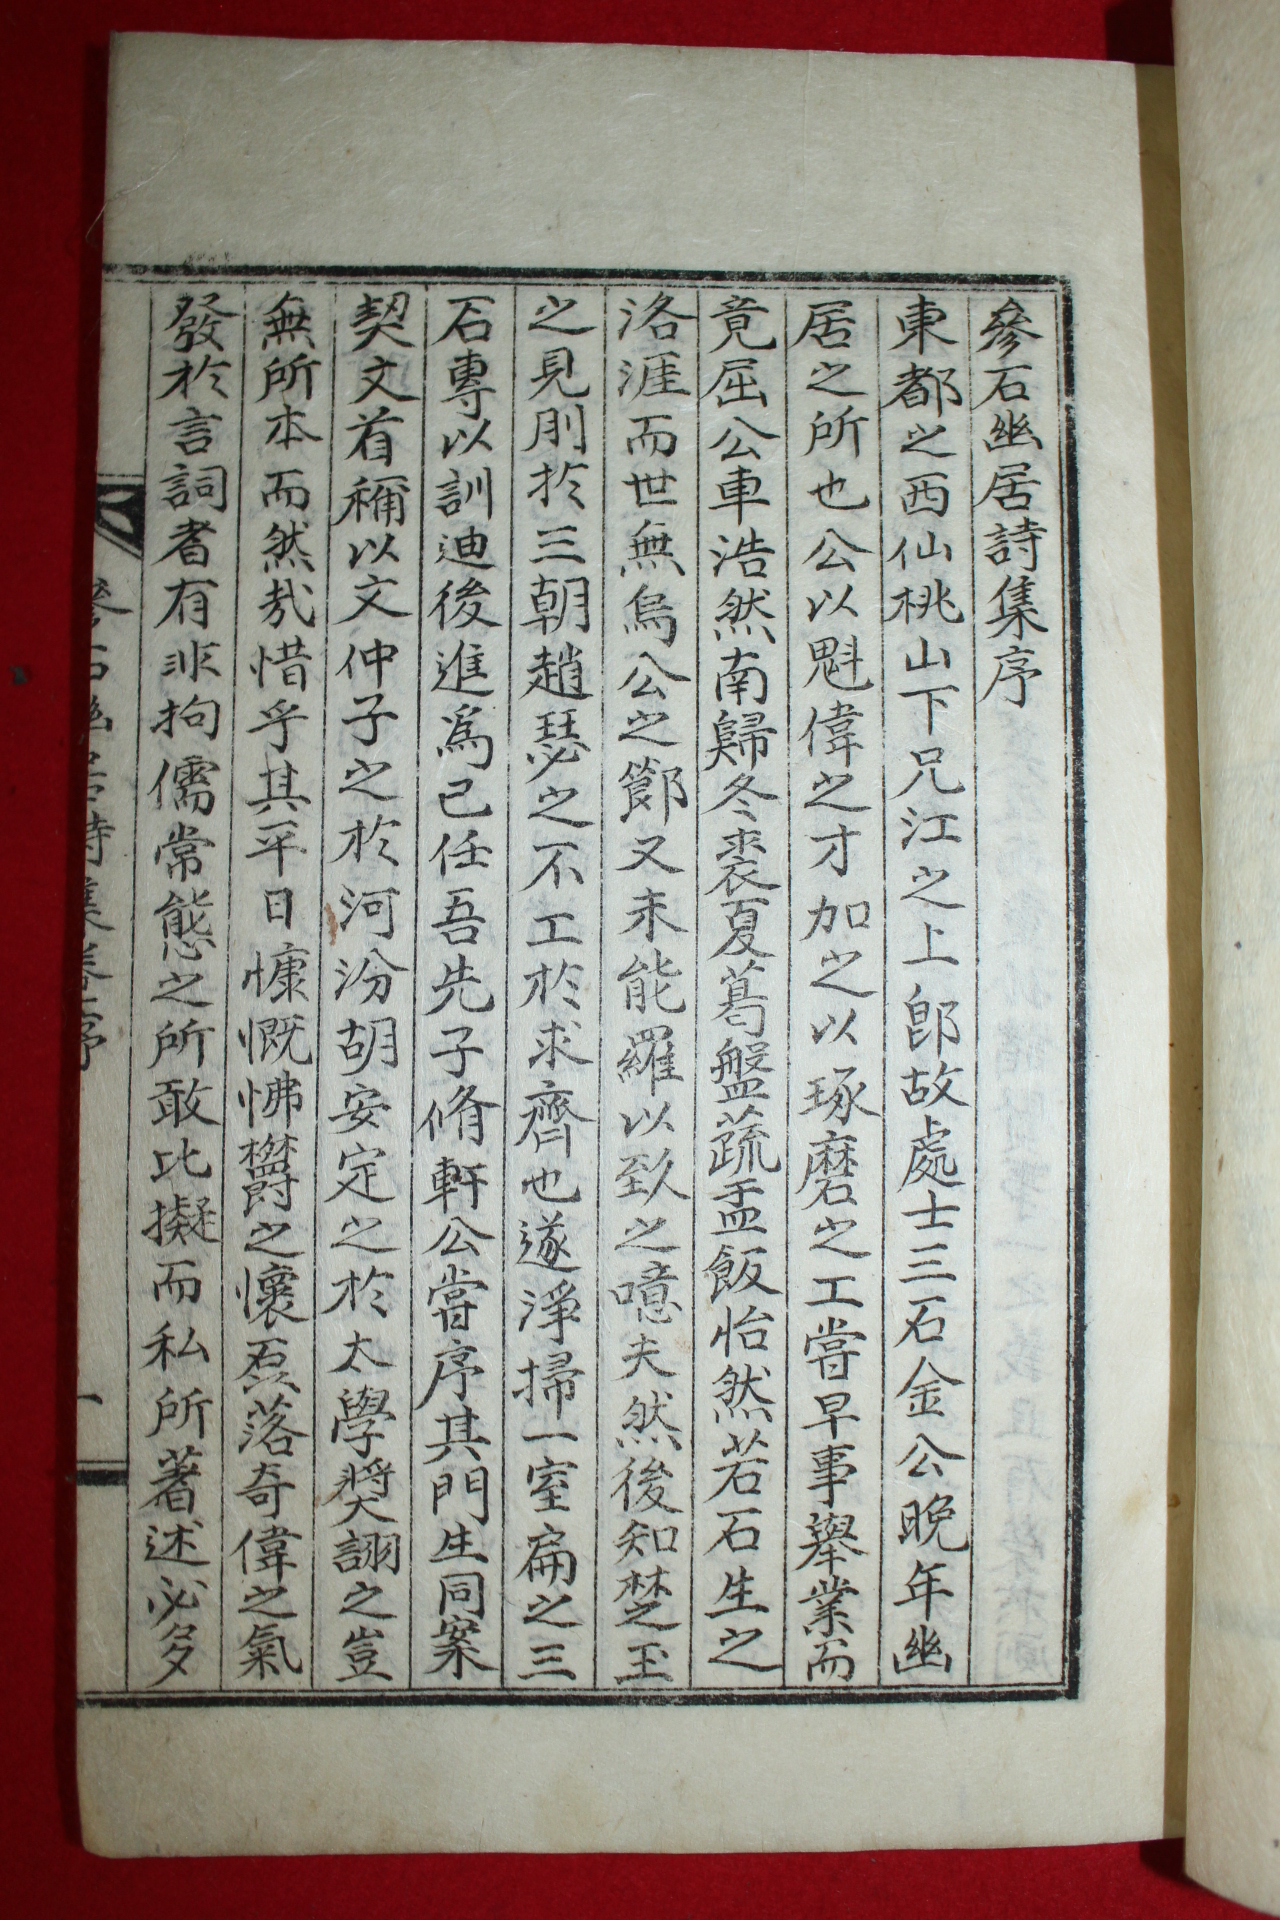 參石幽居詩集序
東都之西仙桃山下兄江之上卽故處士三石金公晩年幽
居之所也公以魁偉之才加之以琢磨之工嘗早事擧業而
竟屈公車浩然南歸冬裘夏葛盤蔬盂飯怡然若石生之
洛涯而世無烏公之節又未能羅以致之噫夫然後知楚玉
之見刖於三朝趙瑟之不工於求齊也遂淨掃一室扁之三
石專以訓迪後進爲己任吾先子脩軒公嘗序其門生同案
契文首稱以文仲子之於河汾胡安定之於太學奬詡之豈
無所本而然㢤惜乎其平日慷慨怫欝之懷磊落奇偉之氣
發於言詞者有非拘儒常態之所敢比擬而私所著述必多
參石幽居詩集卷序 一